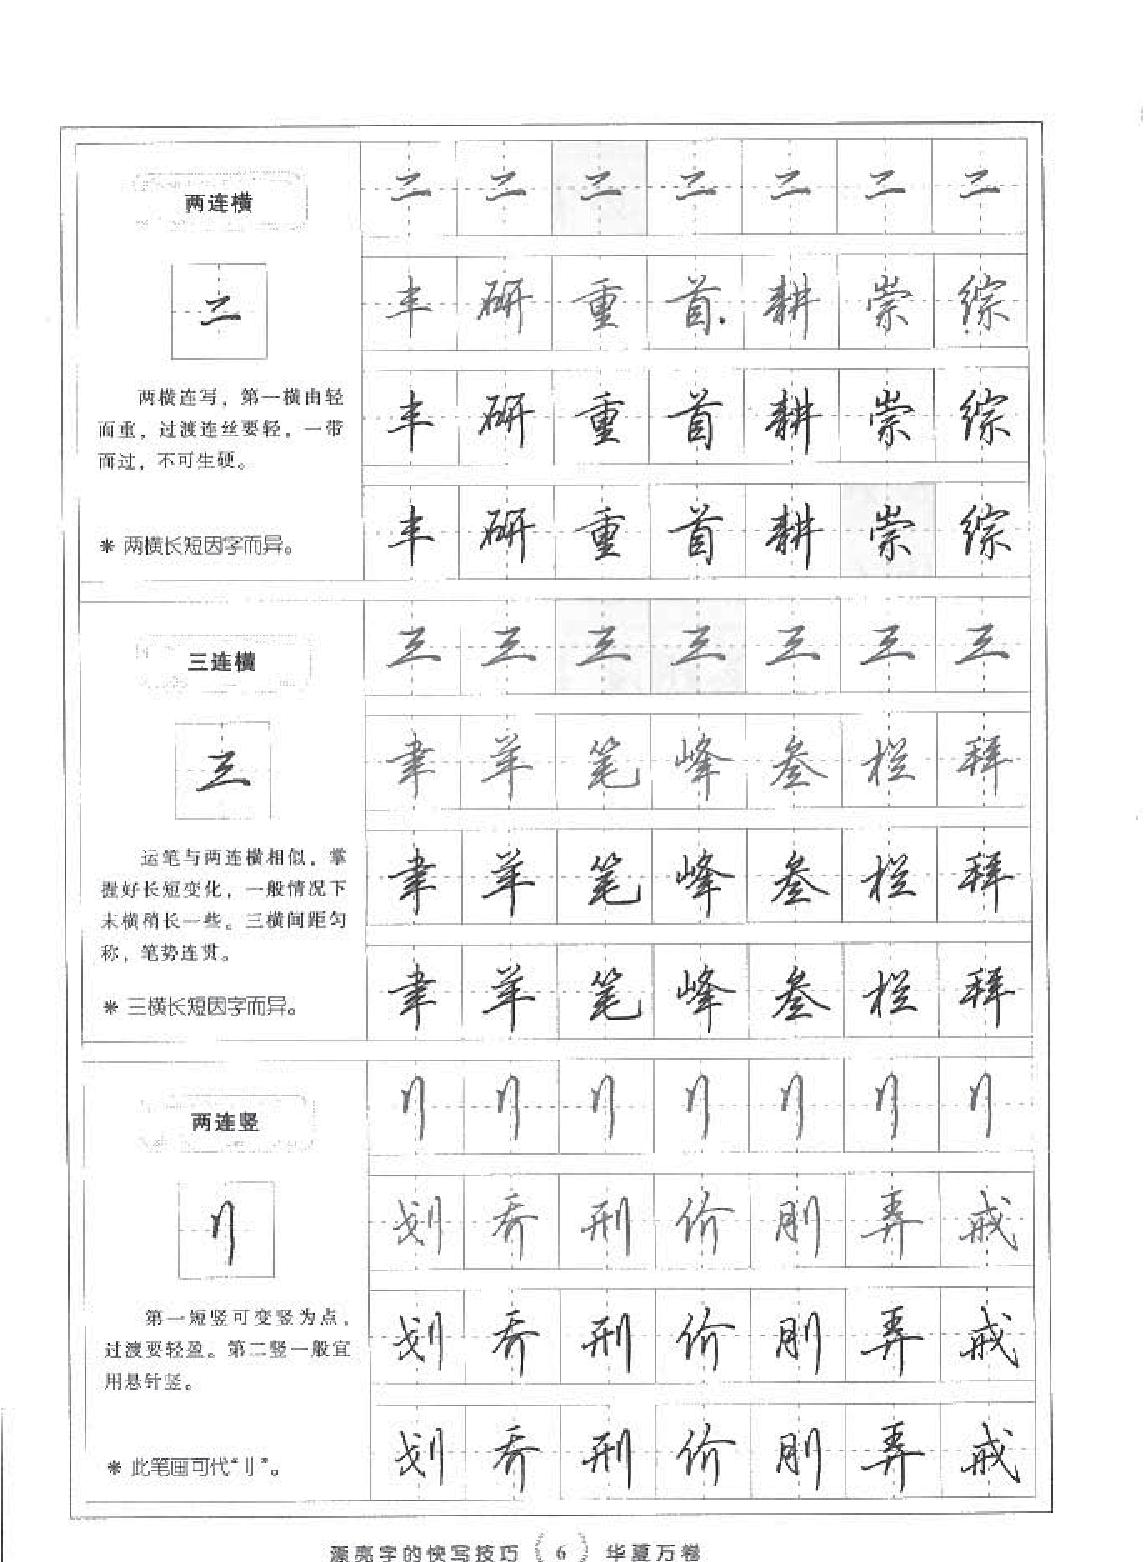 两连横
二
两横连写，第一横由轻
而重，过渡连丝要轻，一带
而过，不可生硬。
* 两横长短因字而异。
二 二 二 二 二 二 二
丰 研 重 首 耕 崇 综
丰 研 重 首 耕 崇 综
丰 研 重 首 耕 崇 综
三连横
三
运笔与两连横相似，掌
握好长短变化，一般情况下
末横稍长一些。三横间距匀
称，笔势连贯。
* 三横长短因字而异。
三 三 三 三 三 三 三
聿 羊 笔 峰 叁 栏 拜
聿 羊 笔 峰 叁 栏 拜
聿 羊 笔 峰 叁 栏 拜
两连竖
刂
第一短竖可变竖为点，
过渡要轻盈。第二竖一般宜
用悬针竖。
* 此笔画可代“刂”。
刂 刂 刂 刂 刂 刂 刂
划 乔 刑 价 刖 弄 戒
划 乔 刑 价 刖 弄 戒
划 乔 刑 价 刖 弄 戒
漂亮字的快写技巧 6 华夏万卷